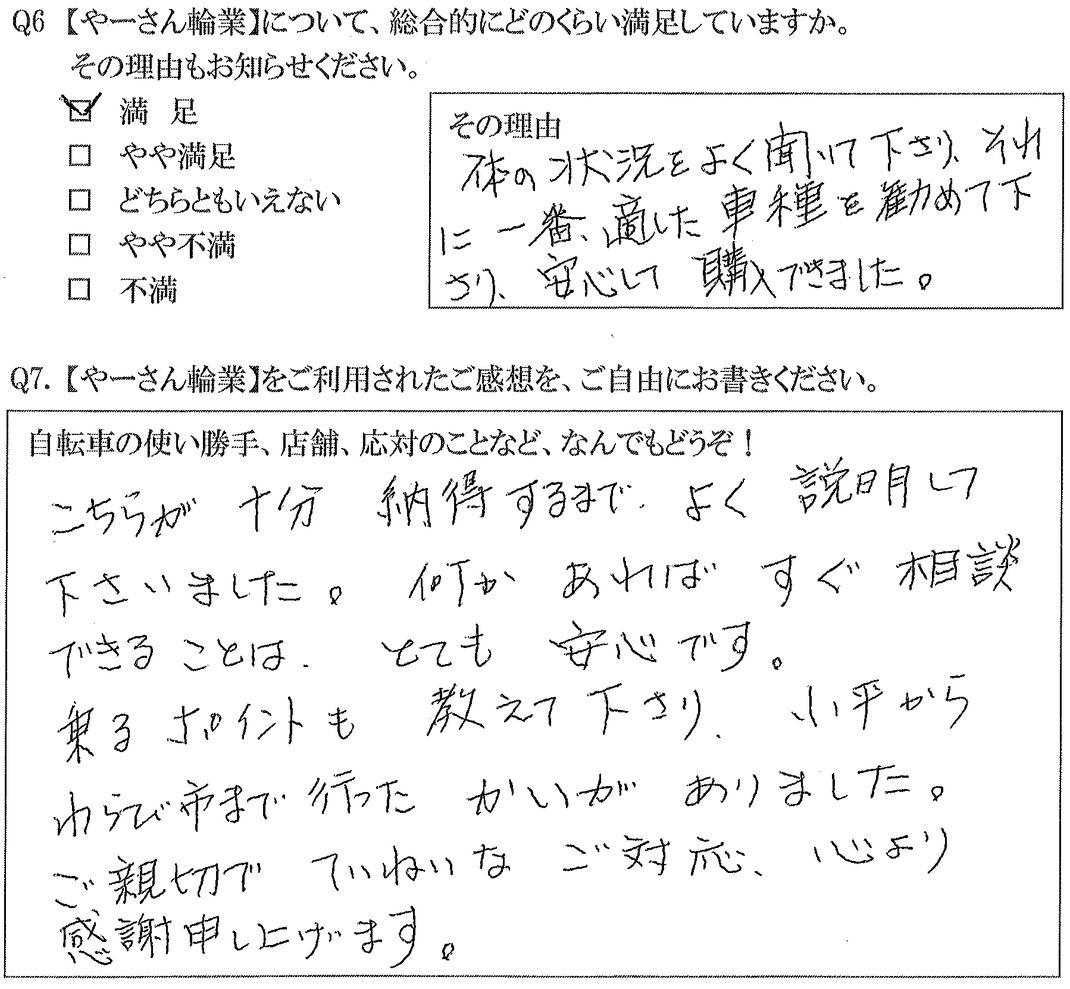 Q6 【やーさん輪業】について、総合的にどのくらい満足していますか。
その理由もお知らせください。
☑ 満 足
□ やや満足
□ どちらともいえない
□ やや不満
□ 不満
その理由
体の状況をよく聞いて下さり、それ
に一番、適した車種を勧めて下
さり、安心して購入できました。
Q7. 【やーさん輪業】をご利用されたご感想を、ご自由にお書きください。
自転車の使い勝手、店舗、応対のことなど、なんでもどうぞ！
こちらが 十分 納得するまで、よく 説明して
下さいました。何か あれば すぐ 相談
できることは、とても 安心です。
乗るポイントも 教えて下さり、小平から
わらび市まで行った かいが ありました。
ご親切で ていねいな ご対応、心より
感謝申し上げます。